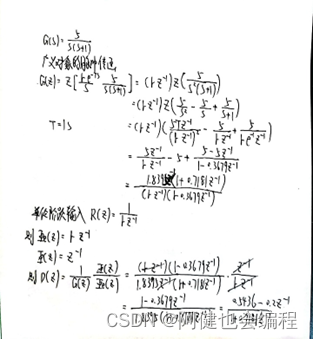 G(s)= 5/s(s+1)
广义对象的脉冲传递
G(z)= Z[ 1-e^-Ts/s · 5/s(s+1) ] = (1-z^-1) Z( 5/s²(s+1) )
= (1-z^-1) Z( 5/s² - 5/s + 5/s+1 )
T=1s = (1-z^-1)( 5Tz^-1/(1-z^-1)² - 5/1-z^-1 + 5/1-e^-1z^-1 )
= 5z^-1/1-z^-1 - 5 + 5-5z^-1/1-0.3679z^-1
= (1+0.7181z^-1)/(1-z^-1)(1-0.3679z^-1)
单位阶跃输入 R(z)= 1/1-z^-1
则 Φe(z)= 1-z^-1
Φ(z)= z^-1
则 D(z)= 1/G(z) · Φ(z)/Φe(z) = (1-z^-1)(1-0.3679z^-1)/1.8395z^-1(1+0.7181z^-1) · z^-1/1-z^-1
= 1-0.3679z^-1 =
CSDN @阿健也会编程